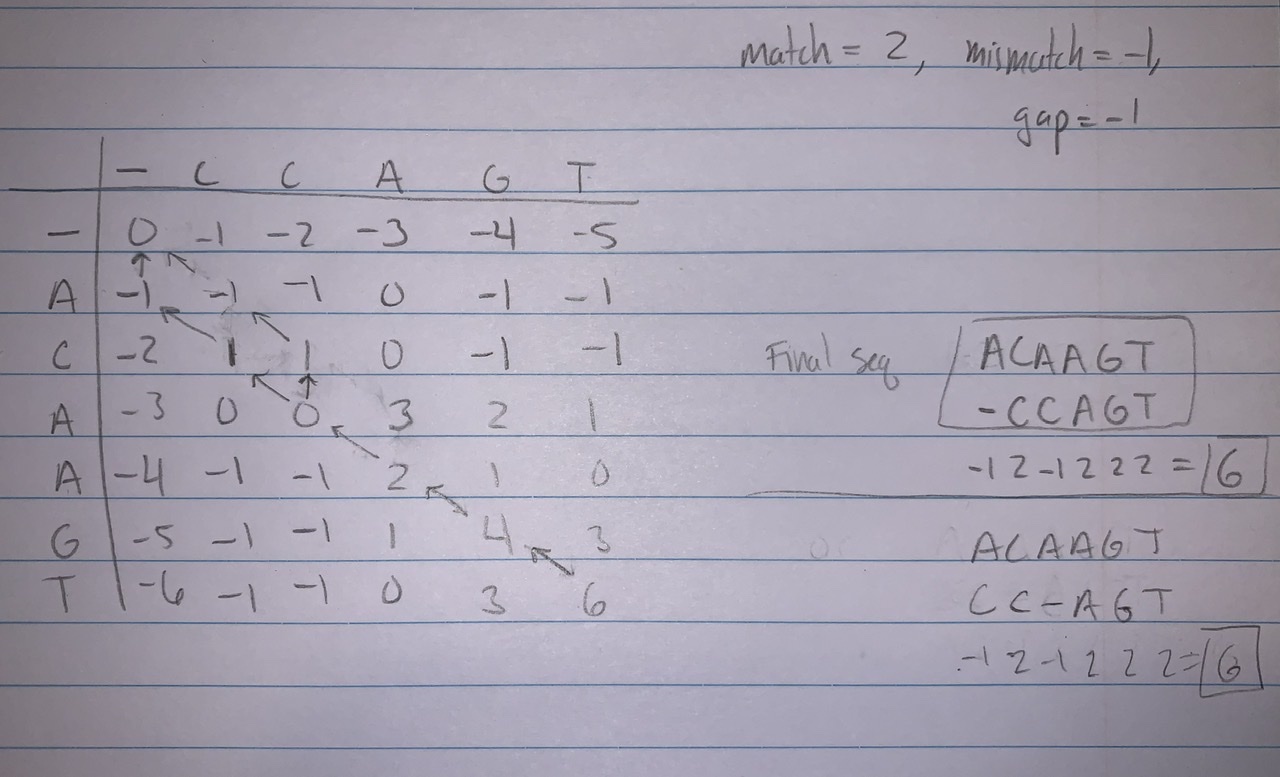 match = 2, mismatch = -1,
gap = -1
- C C A G T
- 0 -1 -2 -3 -4 -5
A -1 -1 -1 0 -1 -1
C -2 1 1 0 -1 -1
A -3 0 0 3 2 1
A -4 -1 -1 2 1 0
G -5 -1 -1 1 4 3
T -6 -1 -1 0 3 6
Final seq ACAAGT
-CCAGT
-1 2 -1 2 2 2 = 6
ACAAGT
CC-AGT
-1 2 -1 2 2 2 = 6